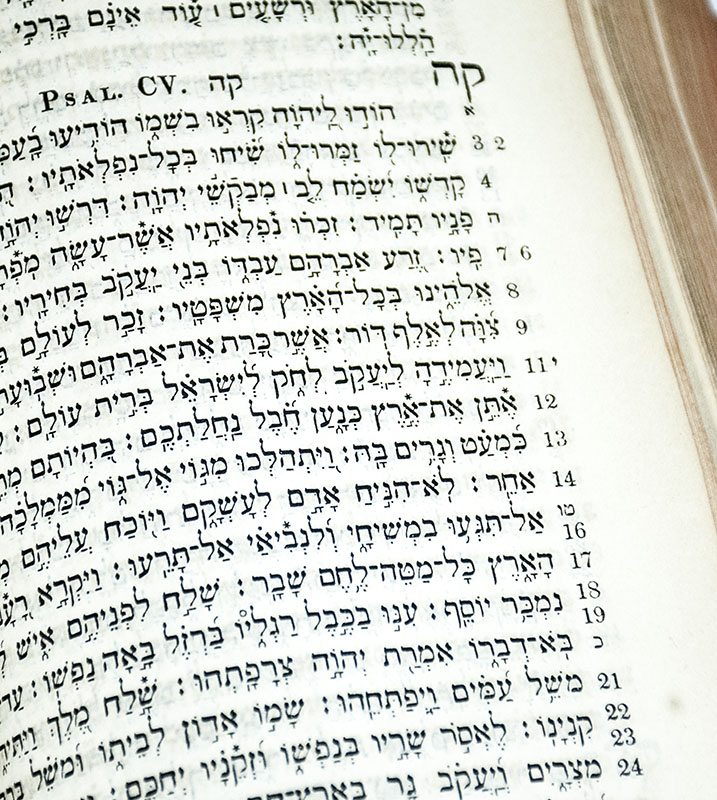 מִן־הָאָ֡רֶץ וּרְשָׁעִ֤ים ׀ ע֤וֹד אֵינָ֗ם בָּרֲכִ֣י
הַֽלְלוּ־יָֽהּ׃
קה PSAL. CV. קה
א הוֹד֣וּ לַ֭יהוָה קִרְא֣וּ בִּשְׁמ֑וֹ הוֹדִ֥יעוּ
2 3 שִֽׁירוּ־ל֭וֹ זַמְּרוּ־ל֑וֹ שִׂ֝֗יחוּ בְּכָל־נִפְלְאֹתָֽיו׃
4 קָדְשׁ֑וֹ יִ֝שְׂמַ֗ח לֵ֤ב ׀ מְבַקְשֵׁ֬י יְהוָֽה׃ דִּרְשׁ֣וּ יְהוָ֣ה
ה פָּנָ֣יו תָּמִֽיד׃ זִכְר֗וּ נִפְלְאֹתָ֥יו אֲשֶׁר־עָשָׂ֑ה
6 7 פִֽיו׃ זֶ֭רַע אַבְרָהָ֣ם עַבְדּ֑וֹ בְּנֵ֖י יַעֲקֹ֣ב בְּחִירָֽיו׃
8 אֱלֹהֵ֑ינוּ בְּכָל־הָ֝אָ֗רֶץ מִשְׁפָּטָֽיו׃ זָכַ֣ר לְעוֹלָ֣ם
9 צִ֝וָּ֗ה לְאֶ֣לֶף דּֽוֹר׃ אֲשֶׁ֣ר כָּ֭רַת אֶת־אַבְרָהָ֑ם
י 11 וַיַּֽעֲמִידֶ֣הָ לְיַעֲקֹ֣ב לְחֹ֑ק לְ֝יִשְׂרָאֵ֗ל בְּרִ֣ית עוֹלָֽם׃
12 אֶתֵּ֥ן אֶת־אֶֽרֶץ כְּנָ֑עַן חֶ֝֗בֶל נַחֲלַתְכֶֽם׃ בִּֽ֭הְיוֹתָם
13 כִּ֝מְעַ֗ט וְגָרִ֥ים בָּֽהּ׃ וַֽ֭יִּתְהַלְּכוּ מִגּ֣וֹי אֶל־גּ֑וֹי מִ֝מַּמְלָכָ֗ה
14 אַחֵֽר׃ לֹֽא־הִנִּ֣יחַ אָדָ֣ם לְעָשְׁקָ֑ם וַיּ֖וֹכַח עֲלֵיהֶ֣ם
טו 16 אַֽל־תִּגְּע֥וּ בִמְשִׁיחָ֑י וְ֝לִנְבִיאַ֗י אַל־תָּרֵֽעוּ׃ וַיִּקְרָ֣א
17 הָאָ֑רֶץ כָּֽל־מַטֵּה־לֶ֥חֶם שָׁבָֽר׃ שָׁלַ֣ח לִפְנֵיהֶ֣ם אִ֑ישׁ
18 19 נִמְכַּ֥ר יוֹסֵֽף׃ עִנּ֣וּ בַכֶּ֣בֶל רַגְל֑יֹו בַּ֝רְזֶ֗ל בָּ֣אָה נַפְשֽׁוֹ׃
כ בֹּֽא־דְבָר֑וֹ אִמְרַ֖ת יְהוָ֣ה צְרָפָֽתְהוּ׃ שָׁ֣לַח מֶ֭לֶךְ
21 מֹשֵׁ֥ל עַ֝מִּ֗ים וַֽיְפַתְּחֵֽהוּ׃ שָׂמ֣וֹ אָד֣וֹן לְבֵית֑וֹ וּ֝מֹשֵׁ֗ל
22 23 קִנְיָנֽוֹ׃ לֶאְסֹ֣ר שָׂרָ֣יו בְּנַפְשׁ֑וֹ וּזְקֵנָ֥יו יְחַכֵּֽם׃
24 מִצְרָ֑יִם וְ֝יַעֲקֹ֗ב גָּ֣ר בְּאֶֽרֶץ